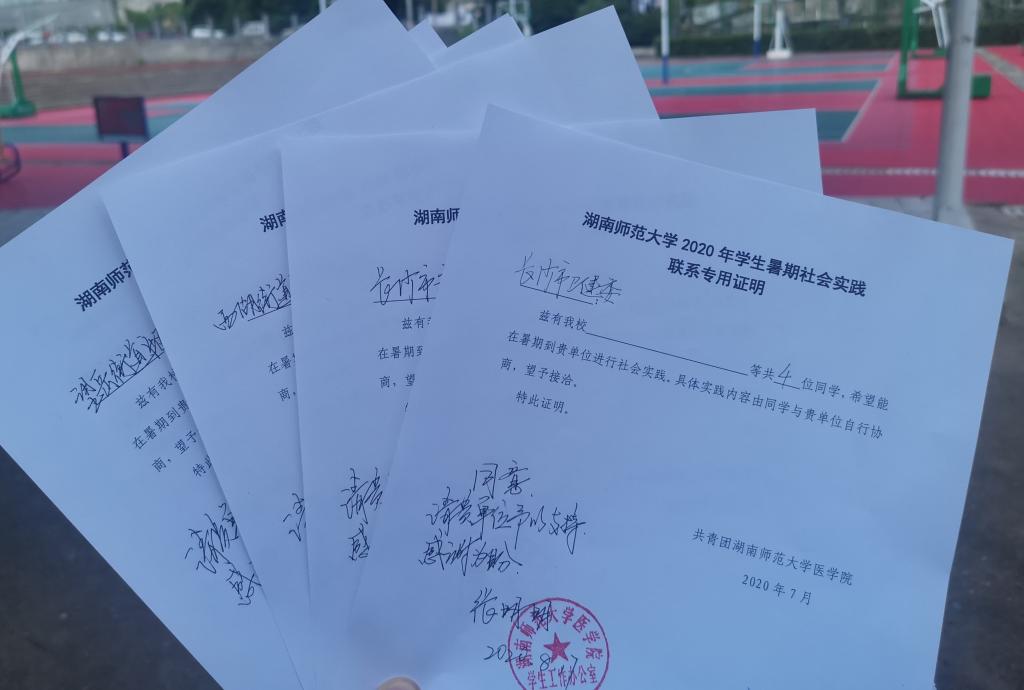 湖南师范大学 2020 年学生暑期社会实践
联系专用证明
长沙市卫健委
兹有我校 等共 4 位同学，希望能
在暑期到贵单位进行社会实践。具体实践内容由同学与贵单位自行协
商，望予接洽。
特此证明。
同意，
请贵单位予以支持，
感谢
共青团湖南师范大学医学院
2020 年 7 月
湖南师范大学医学院
学生工作办公室
湖南师
长沙市
兹有
在暑期到
商，望
请贵
感
湖南
西湖街道
兹
在暑
商，
湖南师范
街道
兹有我校
在暑期到贵
商，望予
特